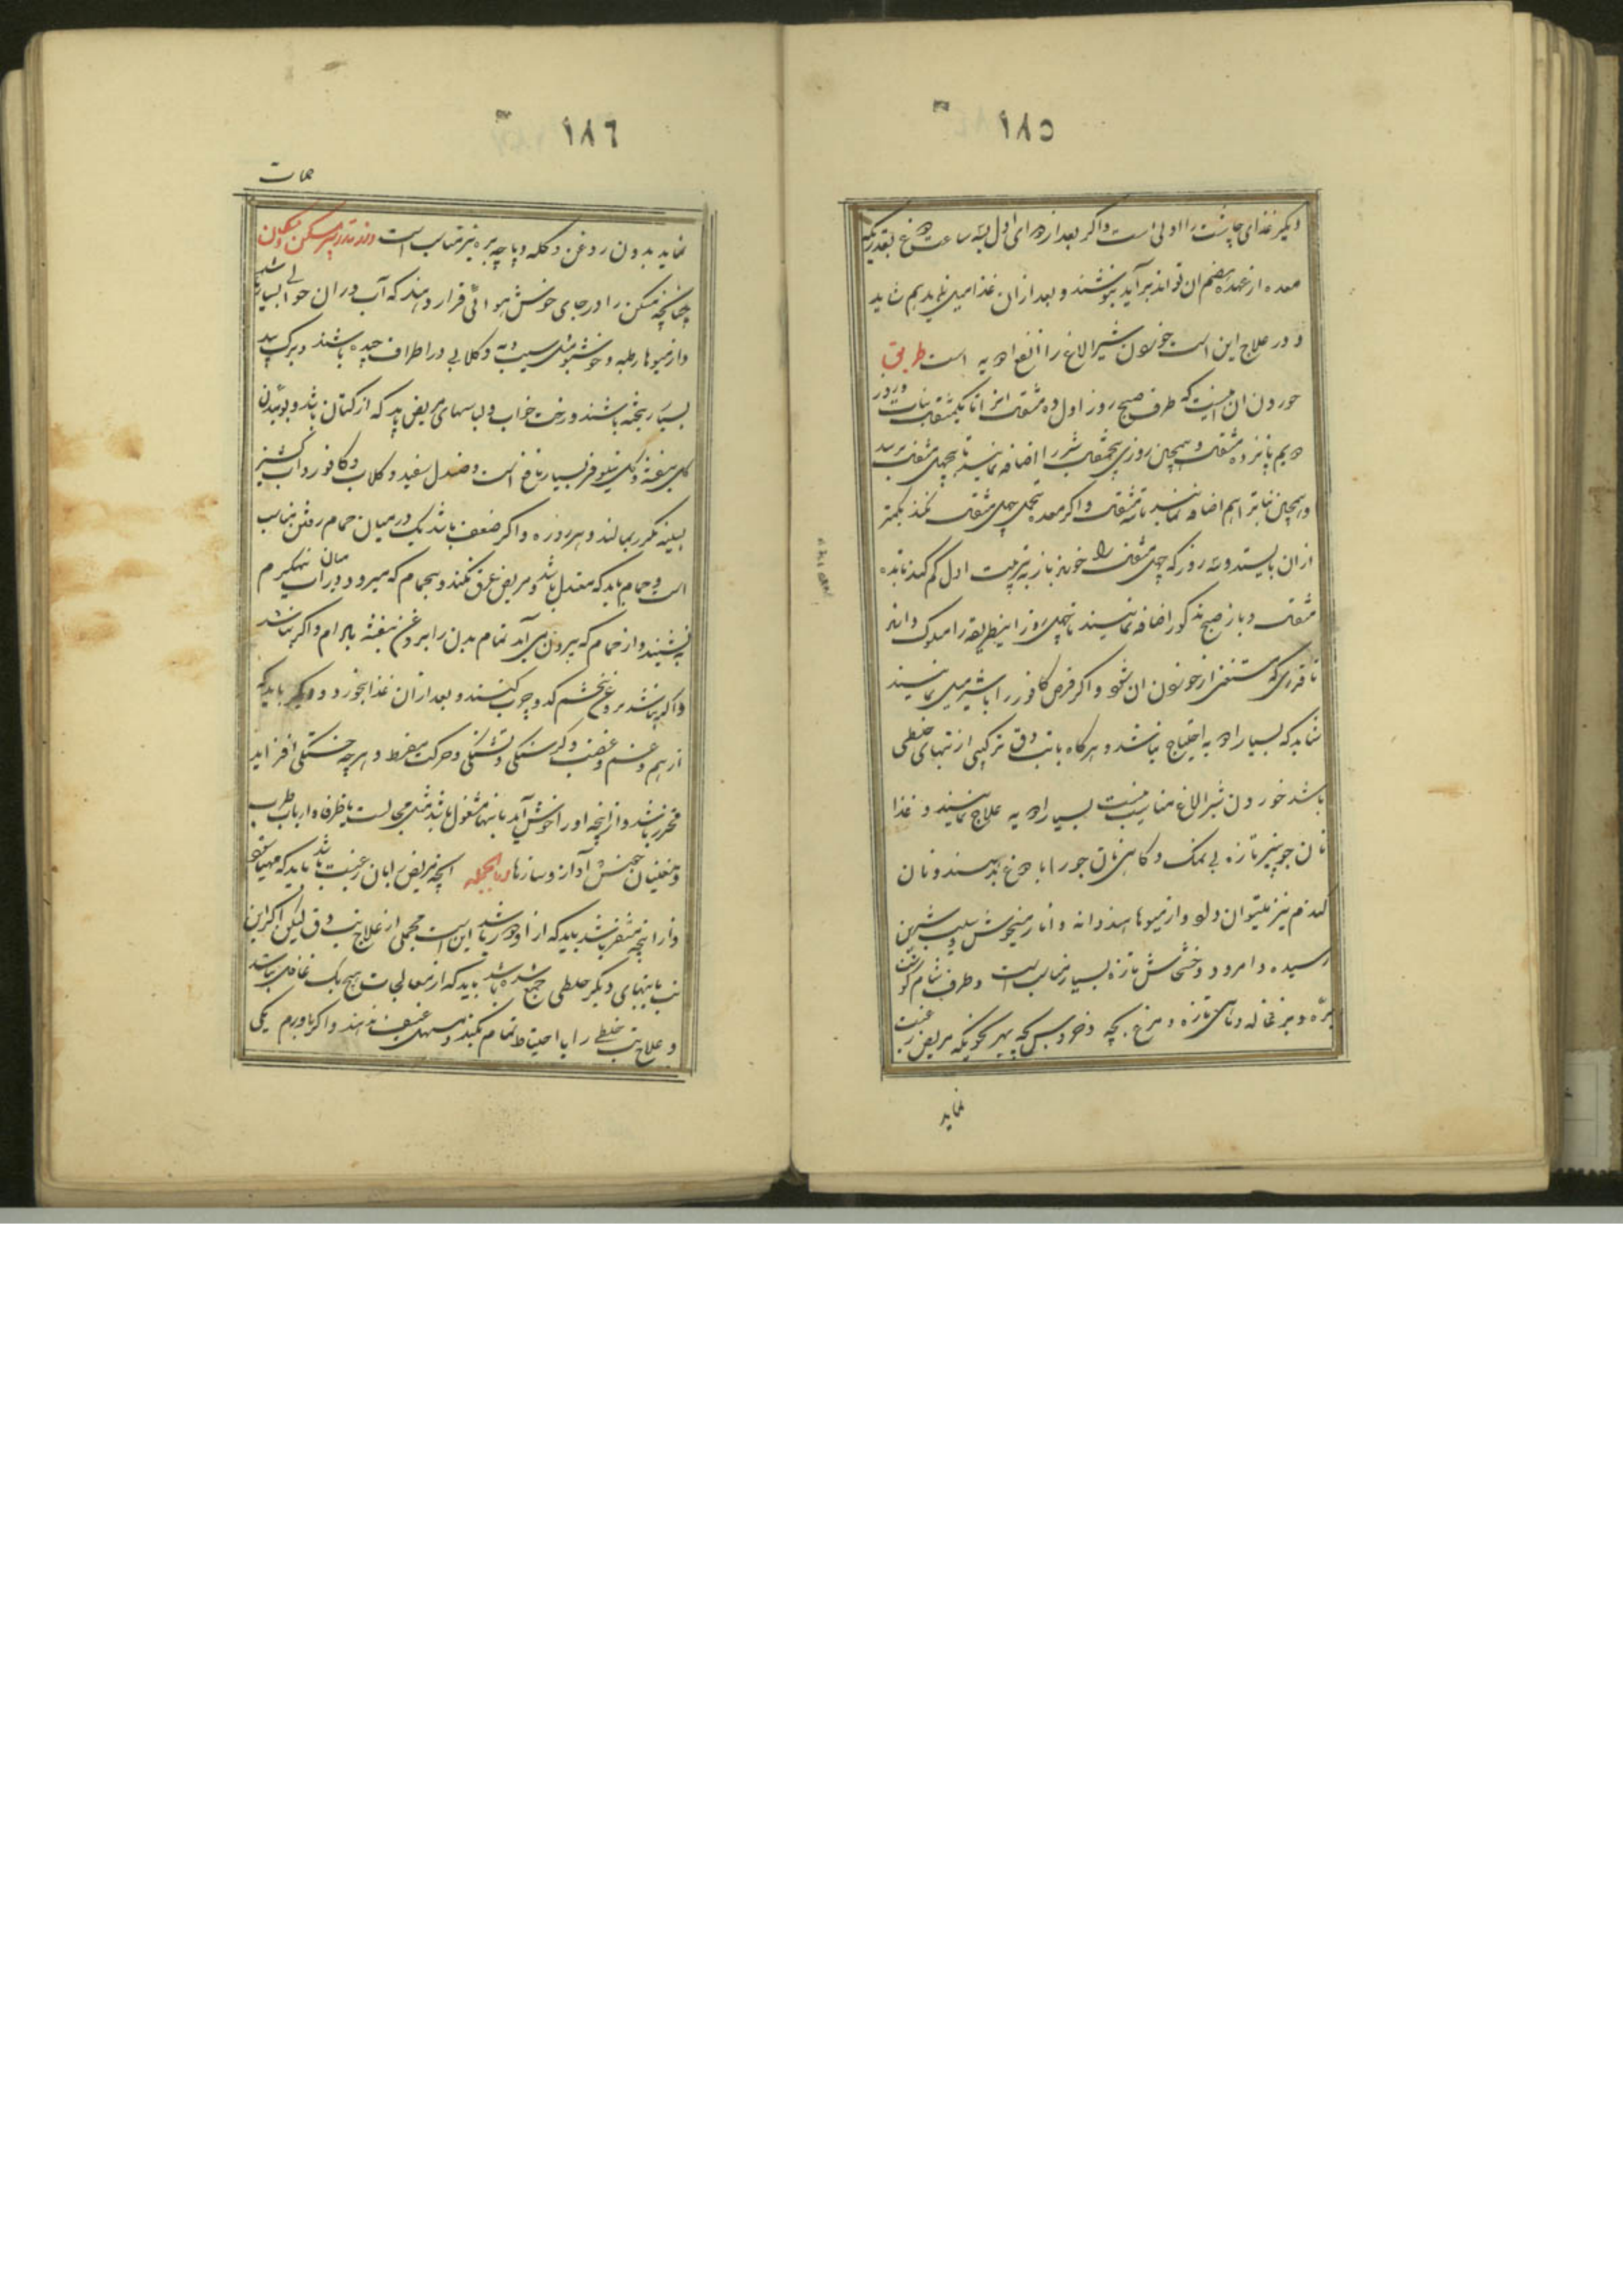 ۱۸۵
دیگر غذای چاشت را اولی است و اگر بعد از دوای اول بسه ساعت دوغ بقدریکه
معده از عهده هضم ان تواند برآید بنوشند و بعد ازان غذا میل نماید هم شاید
و در علاج این است خوردن شیر الاغ را انفع ادویه است طریق
خوردن ان اینست که طرف صبح روز اول ده مثقال انرا تا یکمثقال نبات و در
دویم پانزده مثقال و همچنین روزی پنجمثقال شیر را اضافه نمایند تا بچهل مثقال برسد
و همچنین نبات را هم اضافه نمایند تا سه مثقال و اگر معده تحمل چهل مثقال نکند بکمتر
ازان بایستد و سه روز که چهل مثقال را خوردند باز به ترتیب اول کم کنند تا بده
مثقال و باز صبح مذکور اضافه نمایند تا چهل روز اینطریقه را مسلوک دارند
تا قدری که مستغنی از خوردن ان شود و اگر قرص کافور را با شیر میل نمایند
شاید که بسیار ادویه احتیاج نباشد و هرگاه با تب دق ترکیبی از تبهای خلطی
باشد خوردن شیر الاغ مناسب نیست بسیار ادویه علاج نمایند و غذا
نان جو پنیر تازه بی نمک و گاهی نان جو را با دوغ بدهند و نان
گندم نیز میتوان داد و از میوها هندوانه و انار میخوش و سیب شیرین
رسیده و امرود و خشخاش تازه بسیار مناسب است و طرف شام گوشت
برّه و بزغاله و ماهی تازه و مرغ بچه و خروس بچه بهر نحویکه مریض رغبت
نماید
۱۸٦
حمات
نماید بدون روغن و کله و پاچه بره نیز مناسب است و در تدبیر مسکن و مکان
چنانچه مسکن را در جای خوش هوائی قرار دهند که آب در ان حوالی بسیار باشد
و از میوها رطبه و خوشبو مثل سیب و به و گلابی در اطراف چیده باشند و برک بید
بسیار ریخته باشند و رخت خواب و لباسهای مریض باید که از کتان باشد و بوئیدن
گل بنفشه و گل نیلوفر بسیار نافع است و صندل سفید و گلاب و کافور و اب گشنیز
بسینه مکرر بمالند و هر روزه و اگر ضعف باشد یک در میان حمام رفتن مناسب
است و حمام باید که معتدل باشد و مریض عرق نکند و بحمام که میرود در میان اب نیمگرم
بنشیند و از حمام که بیرون می آید تمام بدن را بروغن بنفشه بادام و اگر نباشد
و اگر نباشد بروغن تخم کدو چرب کنند و بعد ازان غذا بخورد و دیگر باید که
از هم و غم و غضب و گرسنگی و تشنگی و حرکت مفرط و هر چه خستگی افزاید
محترز باشد و از انچه او را خوش آید بانها مشغول باشد مثل مجالست با ظرفا و ارباب طرب
و مغنیان خوش آواز و سازها و بالجمله انچه مریض بان رغبت باشد باید که مهیا شود
و از انچه متنفر باشد باید که از او دور باشد این است مجملی از علاج تب دق لیکن اگر این
تب با تبهای دیگر خلطی جمع شده باشد باید که از معالجات هیچ یک غافل نباشد
و علاج تب خلطی را با احتیاط تمام بکند و مسهل عنیف ندهند و اگر با ورم یکی